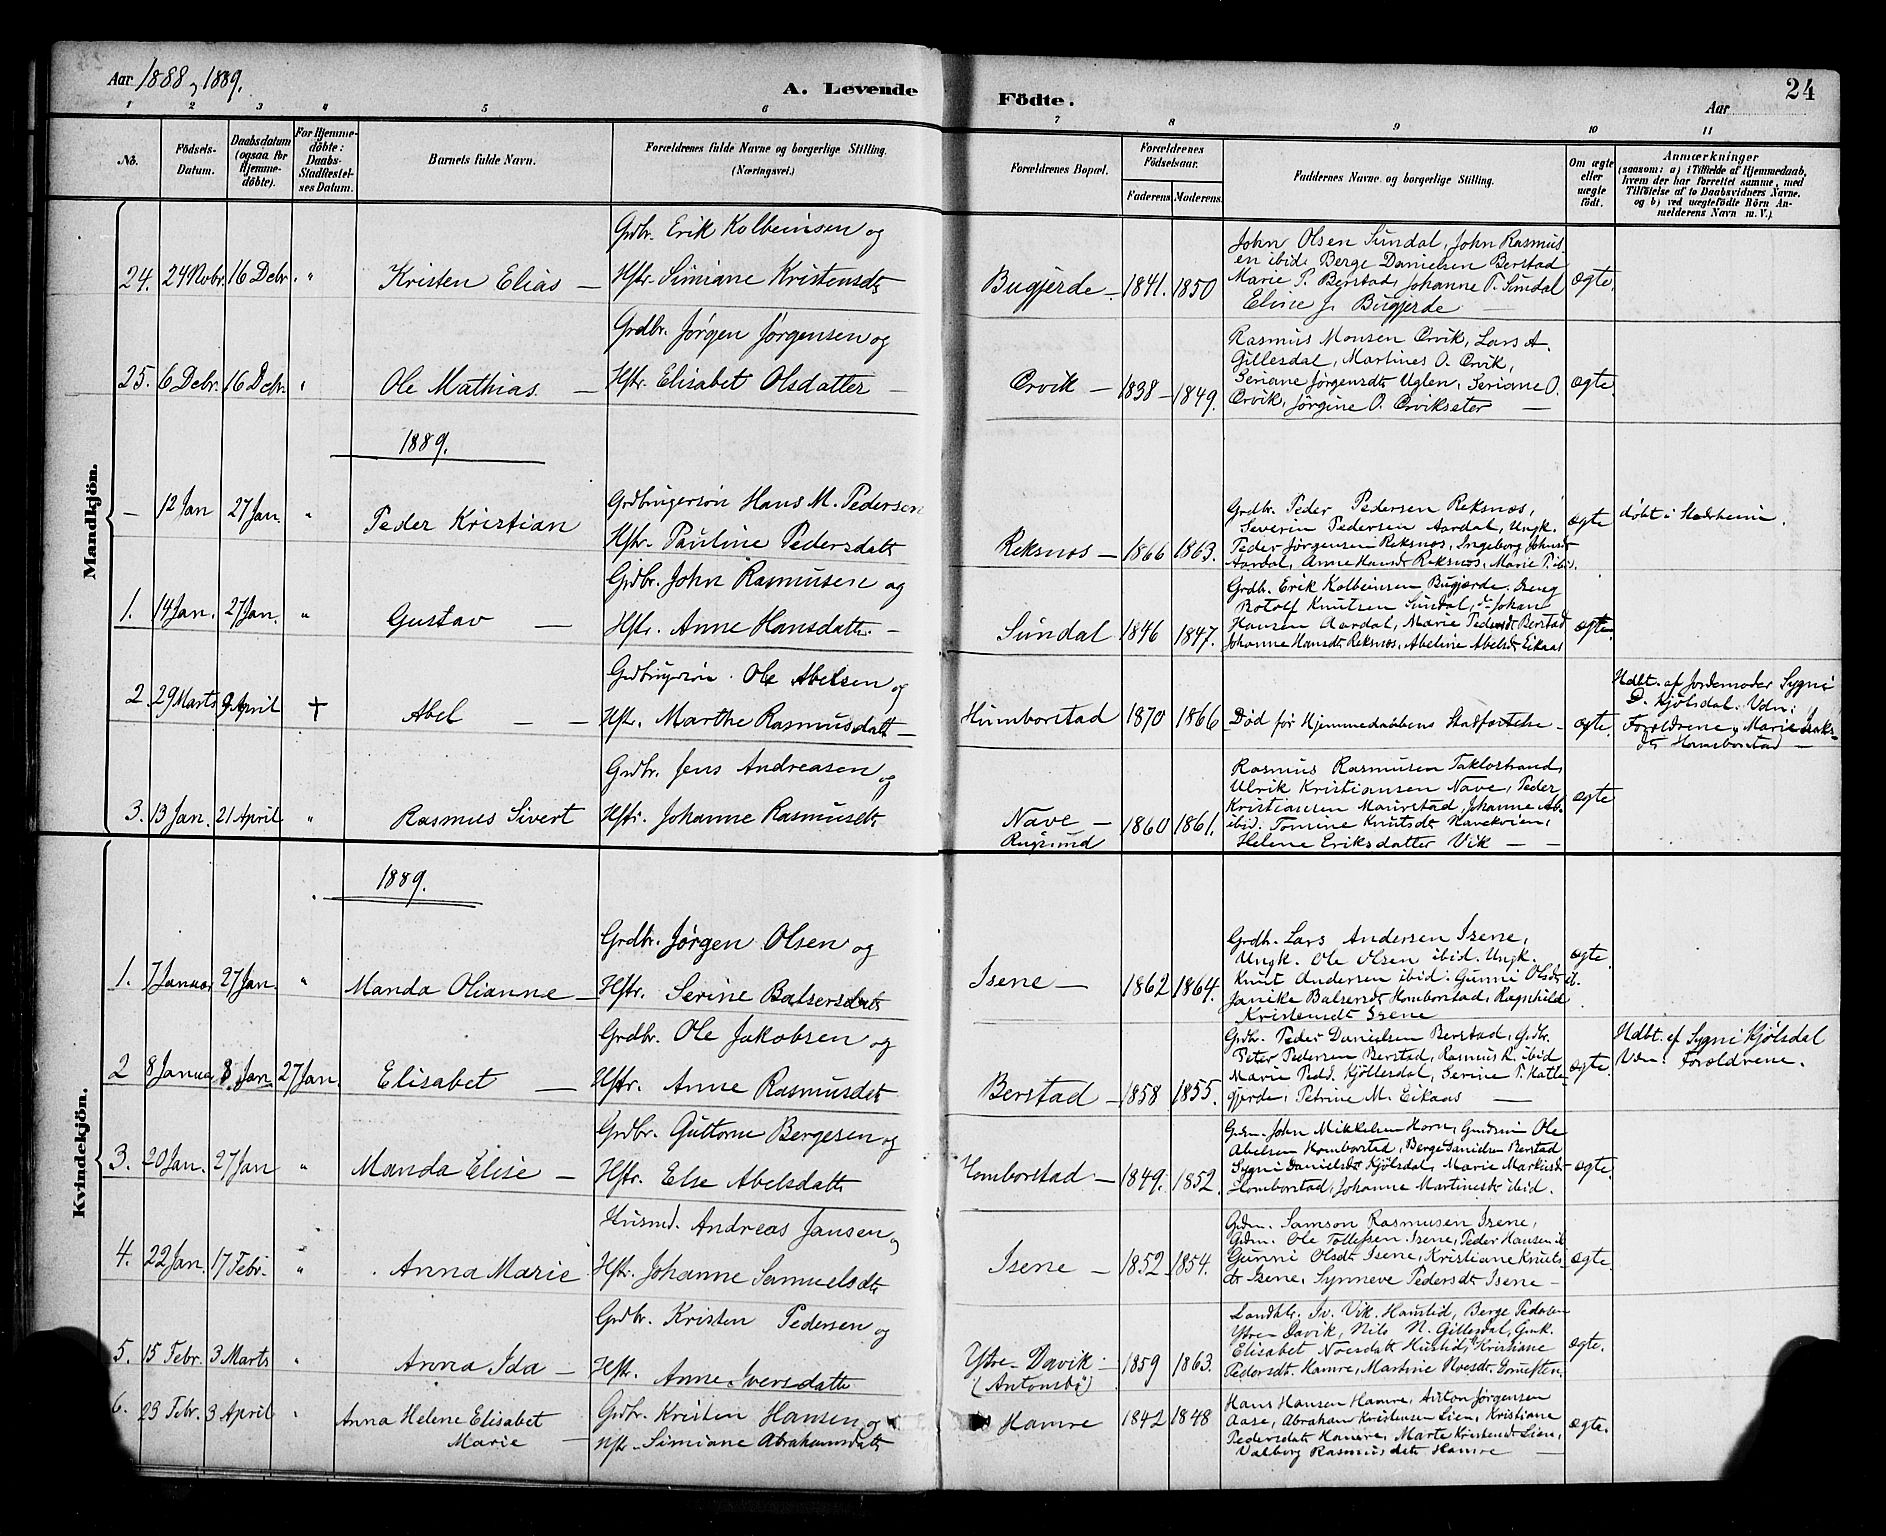 Aar 1888 og 1889.
A. Levende Födte.
Aar
24
1 2 3 4 5 6 7 8 9 10 11
No.
Födsels-Datum.
Daabsdatum (ogsaa for Hjemme-döbte).
For Hjemme-döbte: Daabs-Stadfæstel-ses Datum.
Barnets fulde Navn.
Forældrenes fulde Navne og borgerlige Stilling. (Næringsvei.)
Forældrenes Bopæl.
Forældrenes Födselsaar.
Faderens Moderens
Faddernes Navne og borgerlige Stilling.
Om ægte eller uægte födt.
Anmærkninger
(saasom: a) i Tilfælde af Hjemmedaab, hvem der har forrettet samme, med Tilföielse af to Daabsvidners Navne. og b) ved uægtefödte Börn An-melderens Navn m. V.).
Mandkjön.
24. 24 Novbr. 16 Debr. " Kristen Elias —
Grdbr. Erik Kolbeinsen og
Hstr. Simiane Kristensdtr
Bugjerde — 1841. 1850
John Olsen Sundal, John Rasmus
en ibid. Berge Danielsen Berstad
Marie P. Berstad, Johanne T. Sundal
Eline J. Bugjerde —
ægte.
25. 6 Debr. 16 Debr. " Ole Mathias —
Grdbr. Jørgen Jørgensen og
Hstr. Elisabet Olsdatter —
Ørvik — 1838 — 1849.
Rasmus Monsen Ørvik, Lars A.
Gillesdal, Martines O. Ørvik,
Seriane Jørgensdtr Uglen, Seriane O.
Ørvik, Jørgine O. Ørvikseter —
ægte.
1889.
— 12 Jan 27 Jan. " Peder Kristian
Grdbrugersøn Hans M. Pedersen
Hstr. Pauline Pedersdatter
Reksnos — 1866 1863.
Grdbr. Peder Pedersen Reksnos,
Severin Pedersen Aardal, Ungk.
Peder Jørgensen Reksnos, Ingeborg Johnsdtr
Aardal, Anne Hansdtr Reksnos, Marie P. ibid.
ægte
døbt i Stadsheim.
1. 14 Jan. 27 Jan. " Gustav —
Grdbr. John Rasmusen og
Hstr. Anne Hansdatter —
Sundal 1846 1847.
Grdb. Erik Kolbeinsen Bugjerde, Gmg
Botolf Knutsen Sundal, Johan
Hansen Aardal, Marie Pedersdtr Berstad
Johanne Hansdtr Reksnos, Abeline Abelsdtr Eikaas
ægte.
2. 29 Marts 9 April + Abel — —
Grdbrugersøn Ole Abelsen og
Hstr. Marthe Rasmusdatter —
Humborstad 1870 1866
Død før Hjemmedaabens Stadfæstelse —
ægte.
Hdbt. af Jordemoder Sygni
D. Kjølsdal. Vdn:
Forældrene, Marie Isaks-
dtr Homborstad —
3. 13 Jan. 21 April " Rasmus Sivert
Grdbr. Jens Andreasen og
Hstr. Johanne Rasmusdtr
Nave —
Rugsund
1860 1861.
Rasmus Rasmusen Taklostrand,
Ulrik Kristiansen Nave, Peder
Kristiansen Maurstad, Johanne Ab.
ibid. Tomine Knutsdtr Navekvien,
Helene Eriksdatter Vik — —
ægte
Kvindekjön.
1889.
1. 7 Januar 27 Jan. " Manda Olianne —
Grdbr. Jørgen Olsen og
Hstr. Serine Balsersdatr
Isene — 1862 1864.
Grdb. Lars Andersen Isene,
Ungk. Ole Olsen ibid. Ungk.
Knut Andersen ibid. Gunni Olsdtr ib.
Janike Balsersdtr Homborstad, Ragnhild
Kristensdtr Isene
ægte.
2 8 Januar 8 Jan. 27 Jan. Elisabet —
Grdbr. Ole Jakobsen og
Hstr. Anne Rasmusdtr
Berstad — 1858 1855.
Grdbr. Peder Danielsen Berstad, Grdbr.
Peter Pedersen Berstad, Rasmus R. ibid
Marie Pedd. Kjøllesdal, Serine P. Hatte-
gjerde, Petrine M. Eikaas —
ægte.
Hdbt. af Sygni Kjølsdal
Vdn: Forældrene.
3. 20 Jan. 27 Jan " Manda Elise —
Grdbr. Guttorm Bergesen og
Hstr. Else Abelsdatter
Homborstad — 1849. 1852.
Gdm. John Mikkelsen Horn, Gmdsøn Ole
Abelsen Homborstad, Berge Danielsen Berstad
Sygni Danielsdtr Kjølsdal, Marie Markusdtr
Homborstad, Johanne Martinesdtr ibid.
ægte.
4. 22 Jan. 17 Febr. " Anna Marie
Husmd. Andreas Jansen og
Hstr. Johanne Samuelsdtr
Isene — 1852 1854.
Gdm. Samson Rasmusen Isene,
Gdm. Ole Tollefsen Isene, Peder Hansen ib
Gunni Olsdtr Isene, Kristiane Knuts-
dtr Isene, Synneve Pedersdtr Isene —
ægte.
5. 15 Febr. 3 Marts " Anna Ida —
Grdbr. Kristen Pedersen og
Hstr. Anne Iversdatter
Ytre-Davik —
(Antonsbø)
1859 1863.
Landhlr. Iv. Vik. Haustid, Berge Pedersen
Ytre Davik, Nils N. Gillesdal, Gmk.
Elisabet Noesdtr Hustid, Kristiane
Pedersdtr Hamre, Martine Noesdtr
ægte.
6. 23 Febr. 3 April " Anna Helene Elisabet
Marie —
Grdbr. Kristen Hansen og
Hstr. Simiane Abrahamsdatter
Hamre 1842 1848
Hans Hansen Hamre, Anton Jørgensen
Aase, Abraham Kristensen Lien, Kristiane
Pedersdatr Hamre, Marte Kristensdtr Lien,
Valborg Rasmusdatr Hamre —
ægte.